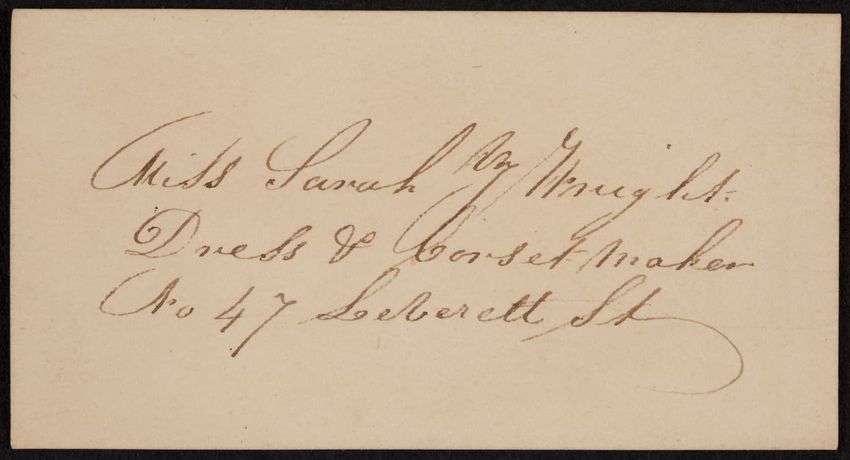 Miss Sarah M Wright.
Dress & Corset maker
No 47 Leverett St